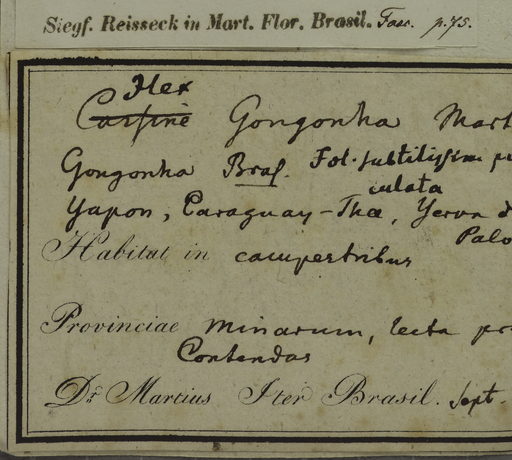 Siegf. Reisseck in Mart. Flor. Brasil. Fasc. p. 75.
Ilex
Cassine Gongonha Mart
Gongonha Bras. Fol. subtilissime
culata
Yapon, Paraguay-Thee, Yerva d
Palo
Habitat in campestribus
Provinciae Minarum, lecta pr
Contendas
Dr. Martius Iter Brasil. Sept.